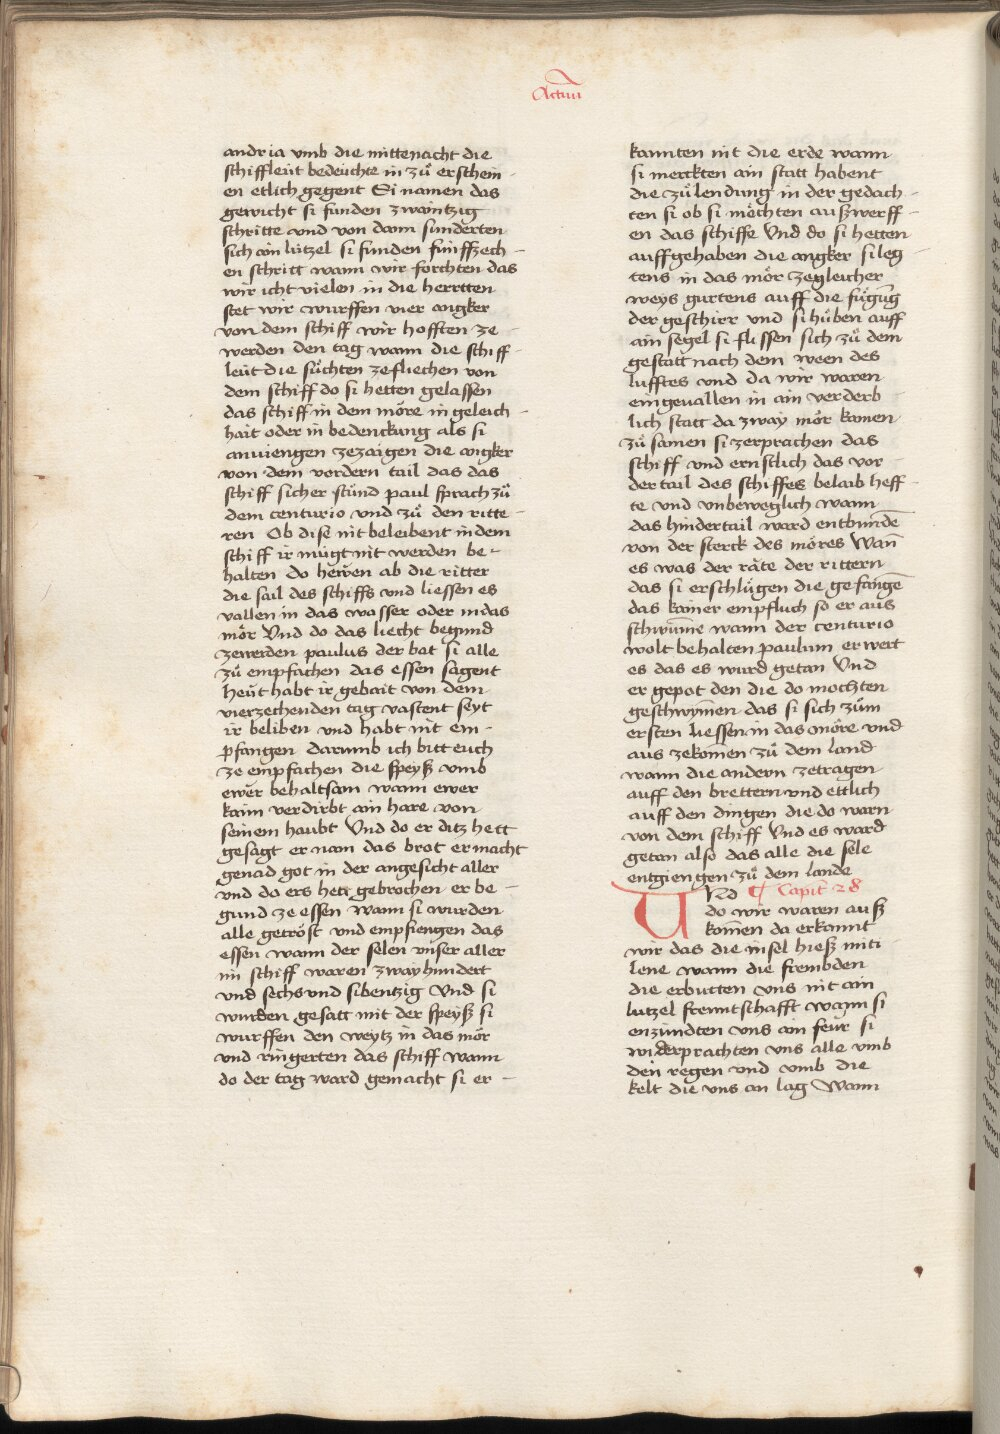 Actuu
andria vmb die mittenacht die
schiffleüt bedeuchte in zů erschein-
en etlich gegent Si namen das
gewicht si funden zwaintzig
schritte vnd von dann sunderten
sich ain lützel si funden fünffzech-
en schritt wann wir forchten das
wir icht vielen in die herrtten
stet wir wurffen vier angker
von dem schiff wir hofften ze-
werden den tag wann die schiff-
leüt die sůchten zefliechen von
dem schiff do si hetten gelassen
das schiff in dem möre in geleich-
hait oder in bedenckung als si
anuiengen zezaigen die angker
von dem vordern tail das das
schiff sicher stůnd paul sprach zů
dem centurio vnd zů den ritte-
ren Ob dise nit beleibent in dem
schiff ir mügt nit werden be-
halten do hewen ab die ritter
die sail des schiffs vnd liessen es
vallen in das wasser oder in das
mör Vnd do das liecht begund
zewerden paulus der bat si alle
zů empfachen das essen sagent
heüt habt ir gebait von dem
vierzechenden tag vastent seyt
ir beliben vnd habt nit em-
pfangen darumb ich bitt euch
ze empfachen die speyß vmb
ewer behaltsam wann ewer
kaim verdirbt ain hare von
seinem haubt Vnd do er ditz hett
gesagt er nam das brot er macht
genad got in der angesicht aller
vnd do ers hett gebrochen er be-
gund ze essen wann si wurden
alle getröst vnd empfiengen das
essen wann der selen vnser aller
im schiff waren zwayhundert
vnd sechs vnd sibentzig Vnd si
wurden gesatt mit der speyß si
wurffen den weytz in das mör
vnd ringerten das schiff wann
do der tag ward gemacht si er-
kannten nit die erde wann
si merckten ain statt habent
die zůlendung in der gedach-
ten si ob si möchten außwerff-
en das schiffe Vnd do si hetten
auffgehaben die angker si leg-
tens in das mör zegleicher
weys gurtens auff die fůgūg
der geschirr vnd si hůben auff
ain segel si flissen sich zů dem
gestatt nach dem ween des
lufftes vnd da wir waren
eingeuallen in ain verderb-
lich statt da zway mör kamen
zů samen si zerprachen das
schiff vnd ernstlich das vor-
der tail des schiffes belaib heff-
te vnd vnbeweglich wann
das hindertail ward entbundē
von der sterck des möres Wañ
es was der räte der rittern
das si erschlůgen die gefangē
das kainer empfluch so er aus
schwum̄e wann der centurio
wolt behalten paulum er wert
es das es wurd getan Vnd
er gepot den die do mochten
geschwym̄en das si sich zům
ersten liessen in das möre vnd
aus zekom̄en zů dem land
wann die andern zetragen
auff den brettern vnd ettlich
auff den dingen die do warn
von dem schiff Vnd es ward
getan also das alle die sele
entgiengen zů dem lande
VNd ¶ Capit 28
do wir waren auß
kom̄en da erkannt
wir das die insel hieß miti
lene wann die frembden
die erbutten vns nit ain
lutzel freuntschafft wann si
enzündten vns ain feür si
widerprachten vns alle vmb
den regen vnd vmb die
kelt die vns an lag Wann